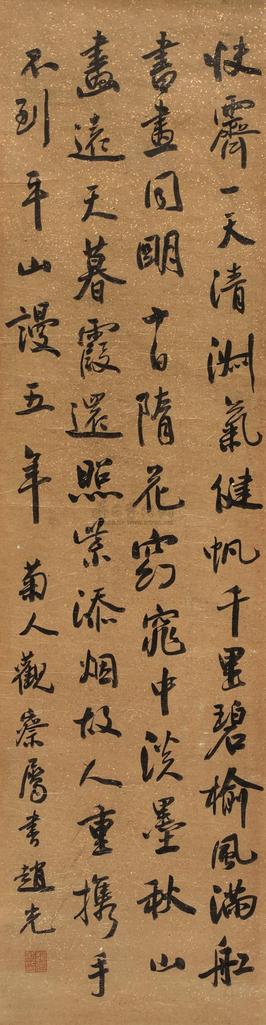 快霽一天清淑氣健帆千里碧榆風滿舡
書畫同明十日隋花窈窕中淡墨秋山
畫遠天暮霞還照紫添烟故人重攜手
不到平山謾五年 菊人觀察屬書趙光